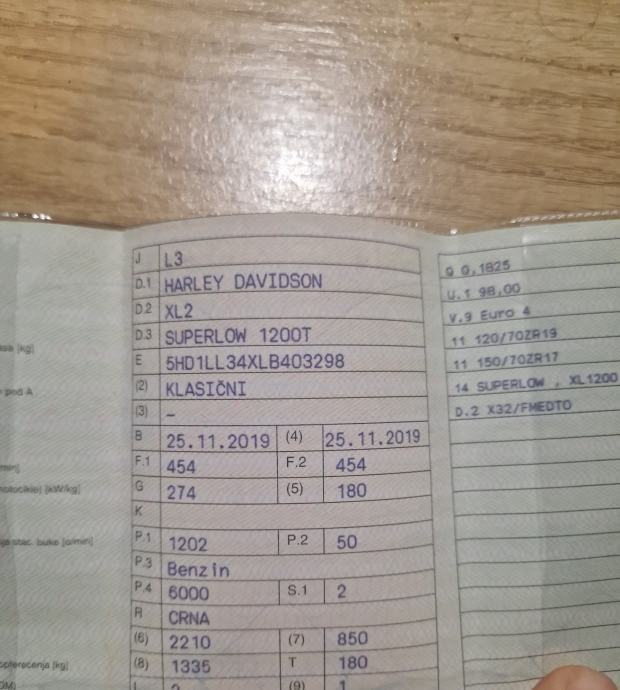 J L3
D.1 HARLEY DAVIDSON
D.2 XL2
D.3 SUPERLOW 1200T
E 5HD1LL34XLB403298
(2) KLASIČNI
(3) –
B 25.11.2019 (4) 25.11.2019
F.1 454 F.2 454
G 274 (5) 180
K
P.1 1202 P.2 50
P.3 Benzin
P.4 6000 S.1 2
R CRNA
(6) 2210 (7) 850
(8) 1335 T 180
(9) 1
[kg]
pod A
[kW/kg]
stac. buke [o/min]
opterećenja [kg]
Q 0,1825
U.1 98,00
V.9 Euro 4
11 120/70ZR19
11 150/70ZR17
14 SUPERLOW , XL1200
D.2 X32/FMEDTO